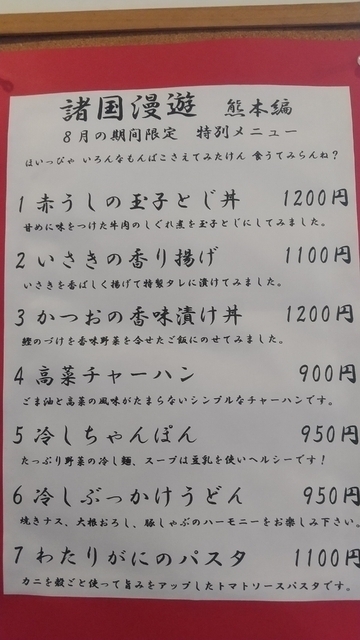 諸国漫遊 熊本編
8月の期間限定 特別メニュー
ほいっぴゃ いろんなもんばこさえてみたけん 食うてみらんね?
1 赤うしの玉子とじ丼 1200円
甘めに味をつけた牛肉のしぐれ煮を玉子とじにしてみました。
2 いさきの香り揚げ 1100円
いさきを香ばしく揚げて特製タレに漬けてみました。
3 かつおの香味漬け丼 1200円
鰹のづけを香味野菜を合せたご飯にのせてみました。
4 高菜チャーハン 900円
ごま油と高菜の風味がたまらないシンプルなチャーハンです。
5 冷しちゃんぽん 950円
たっぷり野菜の冷し麺、スープは豆乳を使いヘルシーです!
6 冷しぶっかけうどん 950円
焼きナス、大根おろし、豚しゃぶのハーモニーをお楽しみ下さい。
7 わたりがにのパスタ 1100円
カニを殻ごと使って旨みをアップしたトマトソースパスタです。